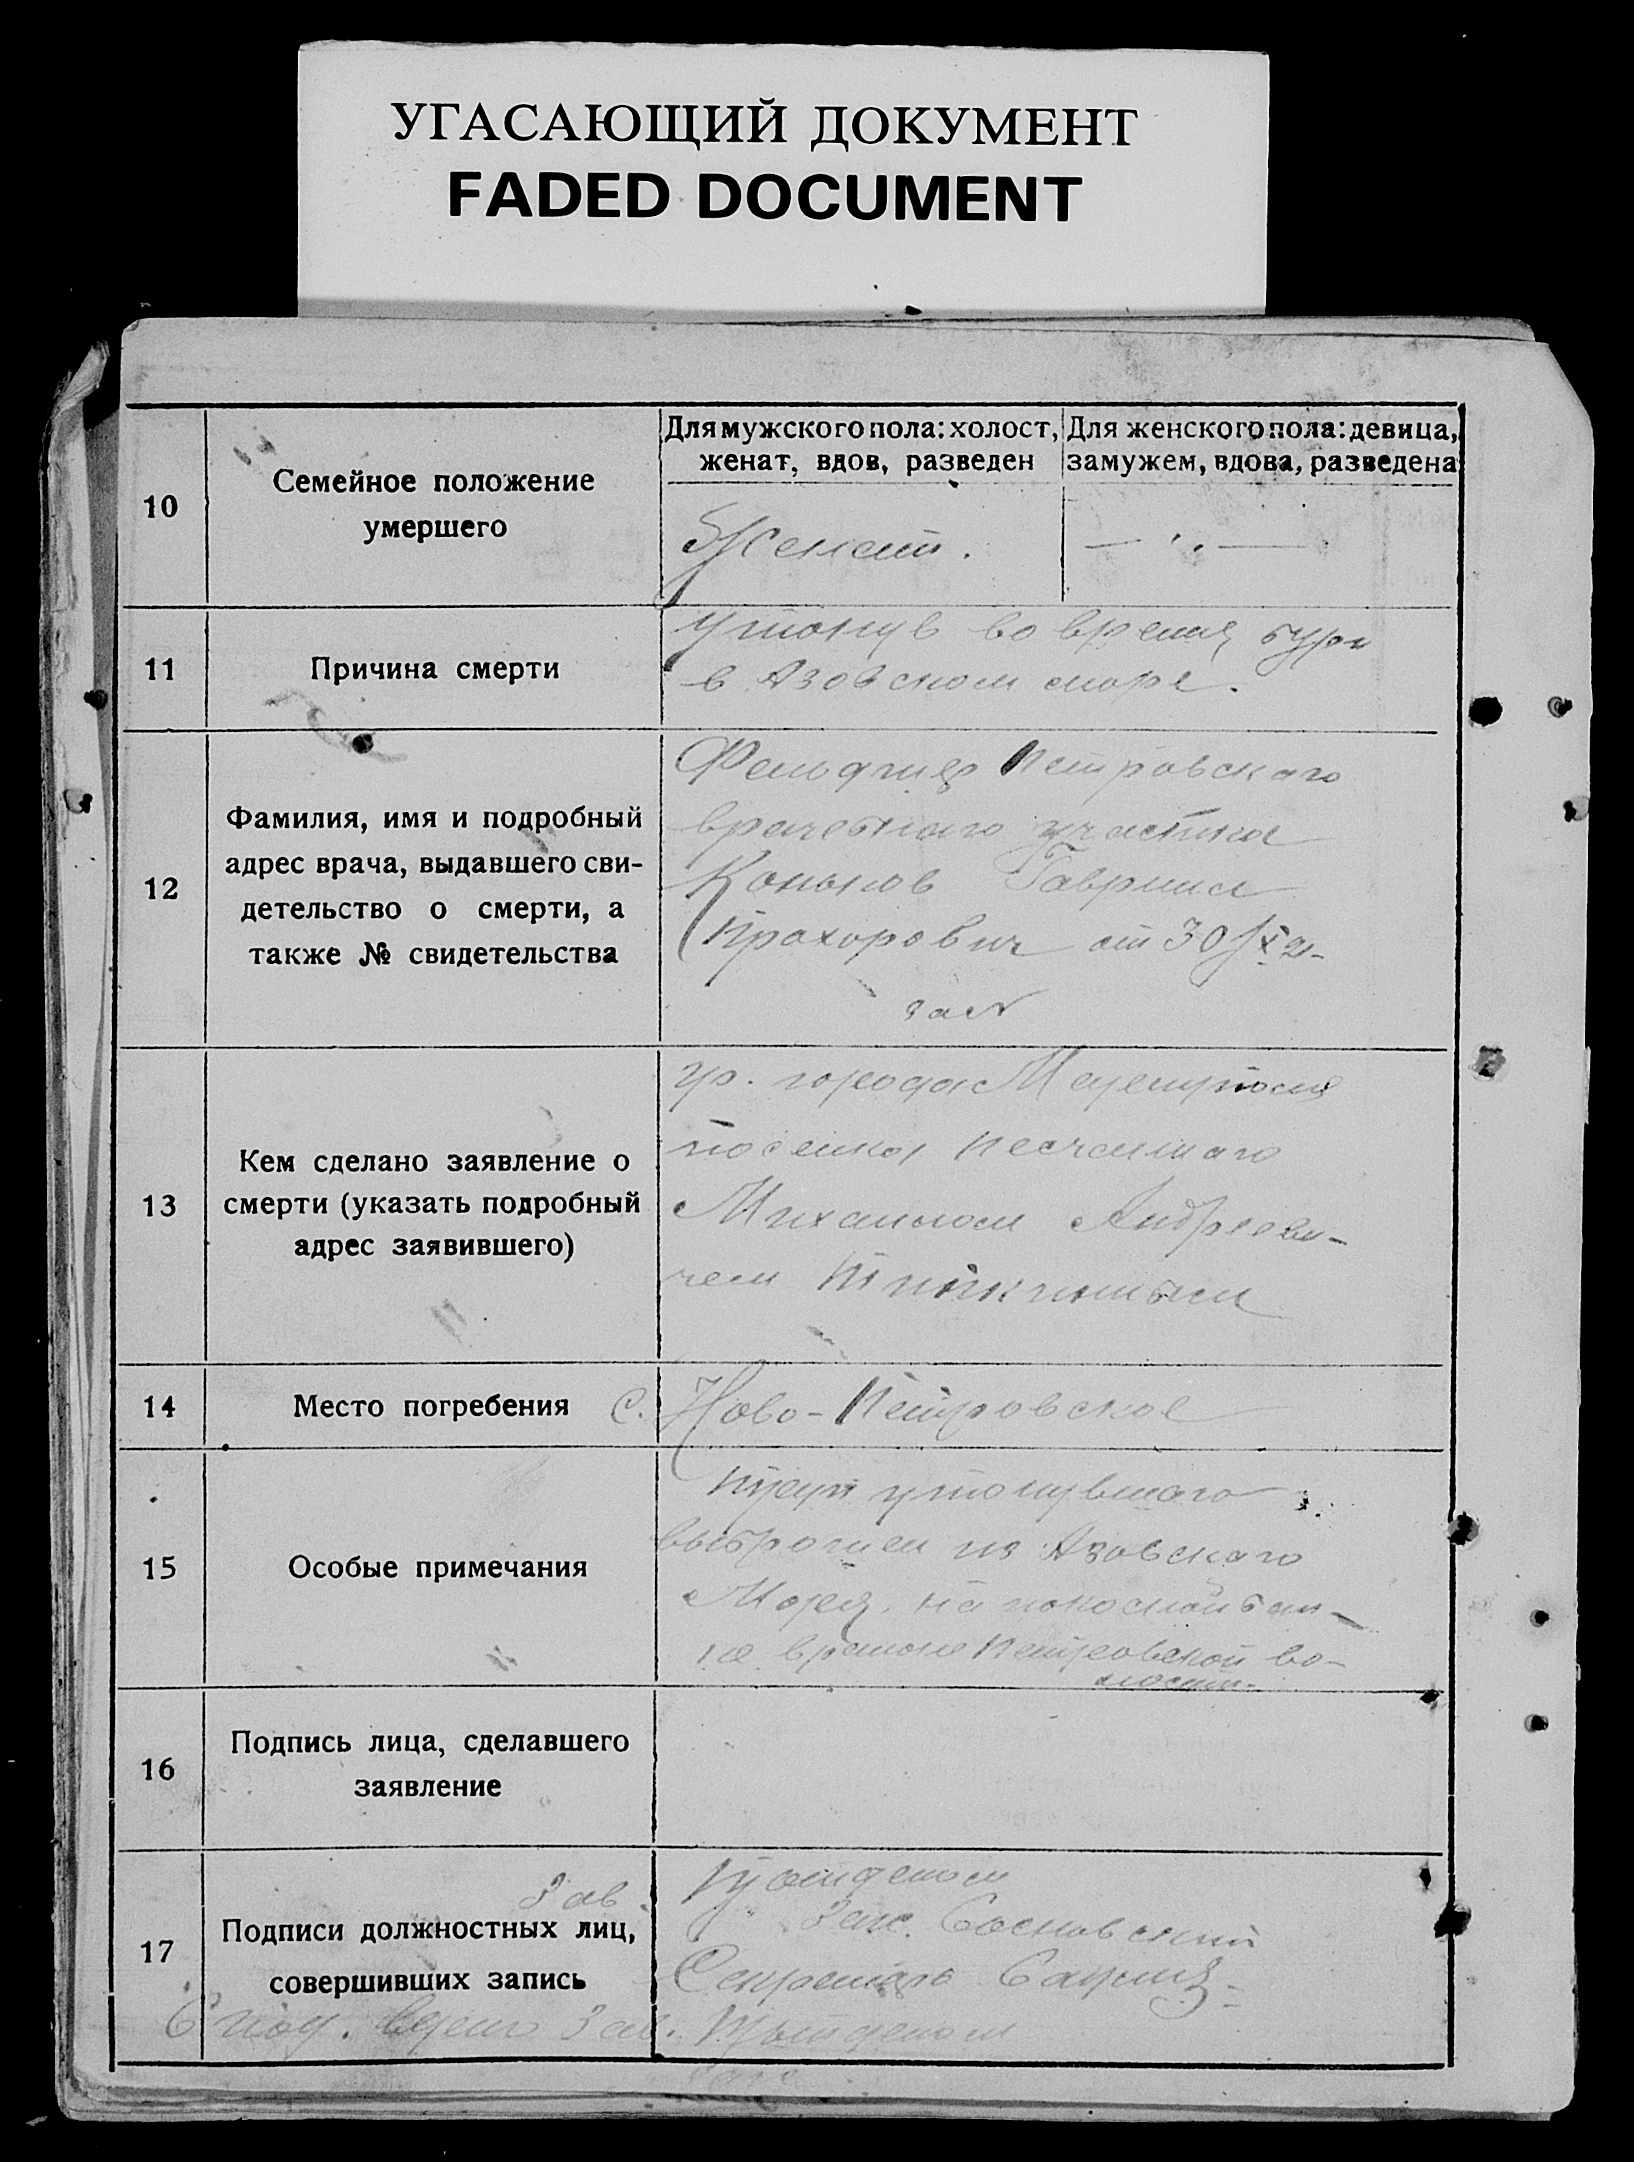 УГАСАЮЩИЙ ДОКУМЕНТ
FADED DOCUMENT
10
Семейное положение
умершего
Для мужского пола: холост,
женат, вдов, разведен
Для женского пола: девица,
замужем, вдова, разведена
Женат.
11
Причина смерти
Утонув во время бури
в Азовском море.
12
Фамилия, имя и подробный
адрес врача, выдавшего сви-
детельство о смерти, а
также № свидетельства
Петровскаго
врачебнаго участка
Коньков Гавриил
Прохорович от 30/X
за №
13
Кем сделано заявление о
смерти (указать подробный
адрес заявившего)
гр. города Мариуполя
поселка Песчаннаго
Михаилом Андрееви-
чем
14
Место погребения
с. Ново-Петровское
15
Особые примечания
Труп утонувшаго
выброшен из Азовскаго
Моря, на
Петровской во-
лости.
16
Подпись лица, сделавшего
заявление
17
Подписи должностных лиц,
совершивших запись
Зав.
Сосновский
Секретарь
С под. верно Зав.